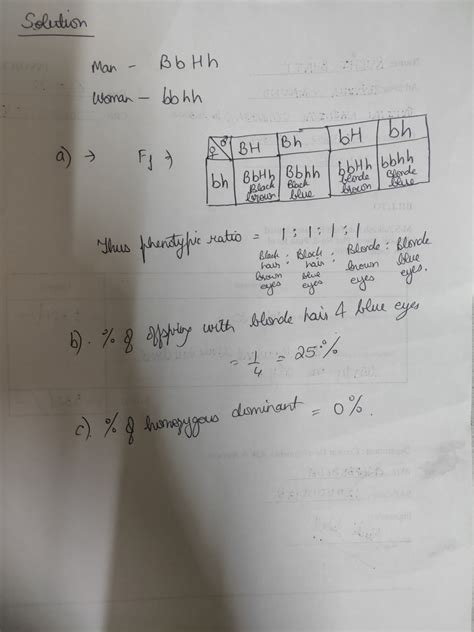 Solution
Man - BbHh
Woman - bbhh
a) → F1 →
♀ ♂ BH Bh bH bh
bh BbHh Bbhh bbHh bbhh
Black Black blonde Blonde
brown blue brown blue
Thus phenotypic ratio = 1 : 1 : 1 : 1
Black : Black : Blonde : Blonde
hair hair brown blue
brown blue eyes eyes.
eyes eyes
b). % of offspring with blonde hair & blue eyes
= 1/4 = 25%
c). % of homozygous dominant = 0%.